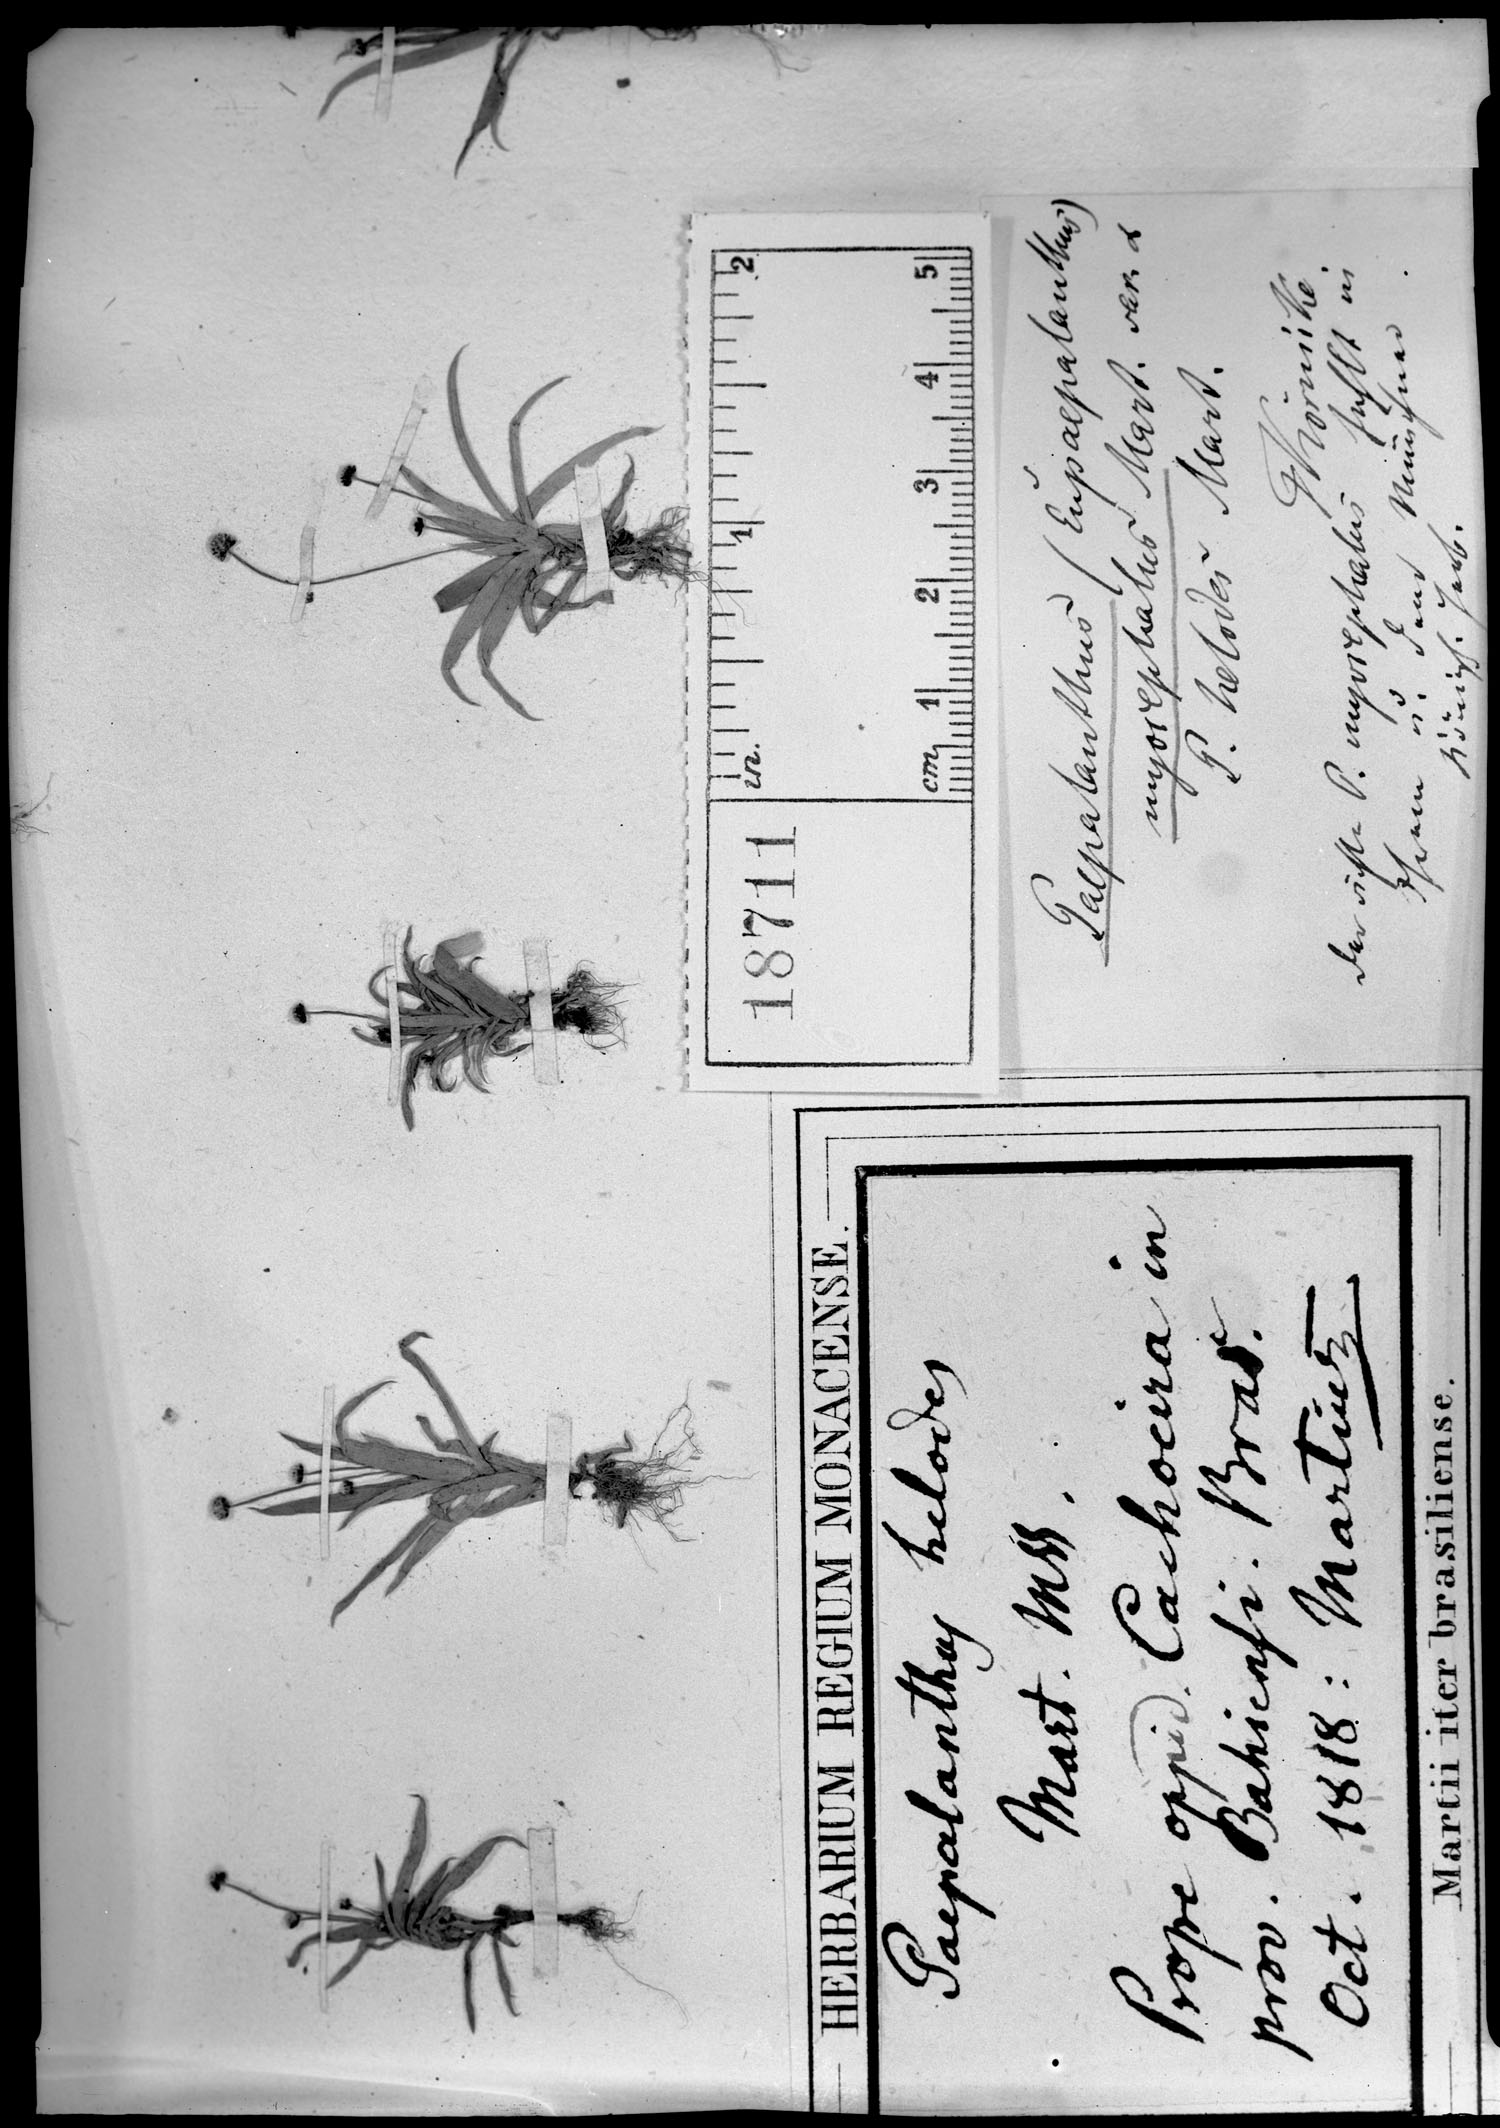 HERBARIUM REGIUM MONACENSE.
Paepalanthus helodes
Mart. Mss.
Prope oppid. Cachoeira in
prov. Bahiensi. Bras.
Oct. 1818: Martius
Martii iter brasiliense.
18711
in. 1 2
cm 1 2 3 4 5
Paepalanthus (Eupaepalanthus)
myocephalus Mart. var. α
P. helodes Mart.
Körnicke.
P. myocephalus fehlt in
u. Münchner
Königl. Herb.